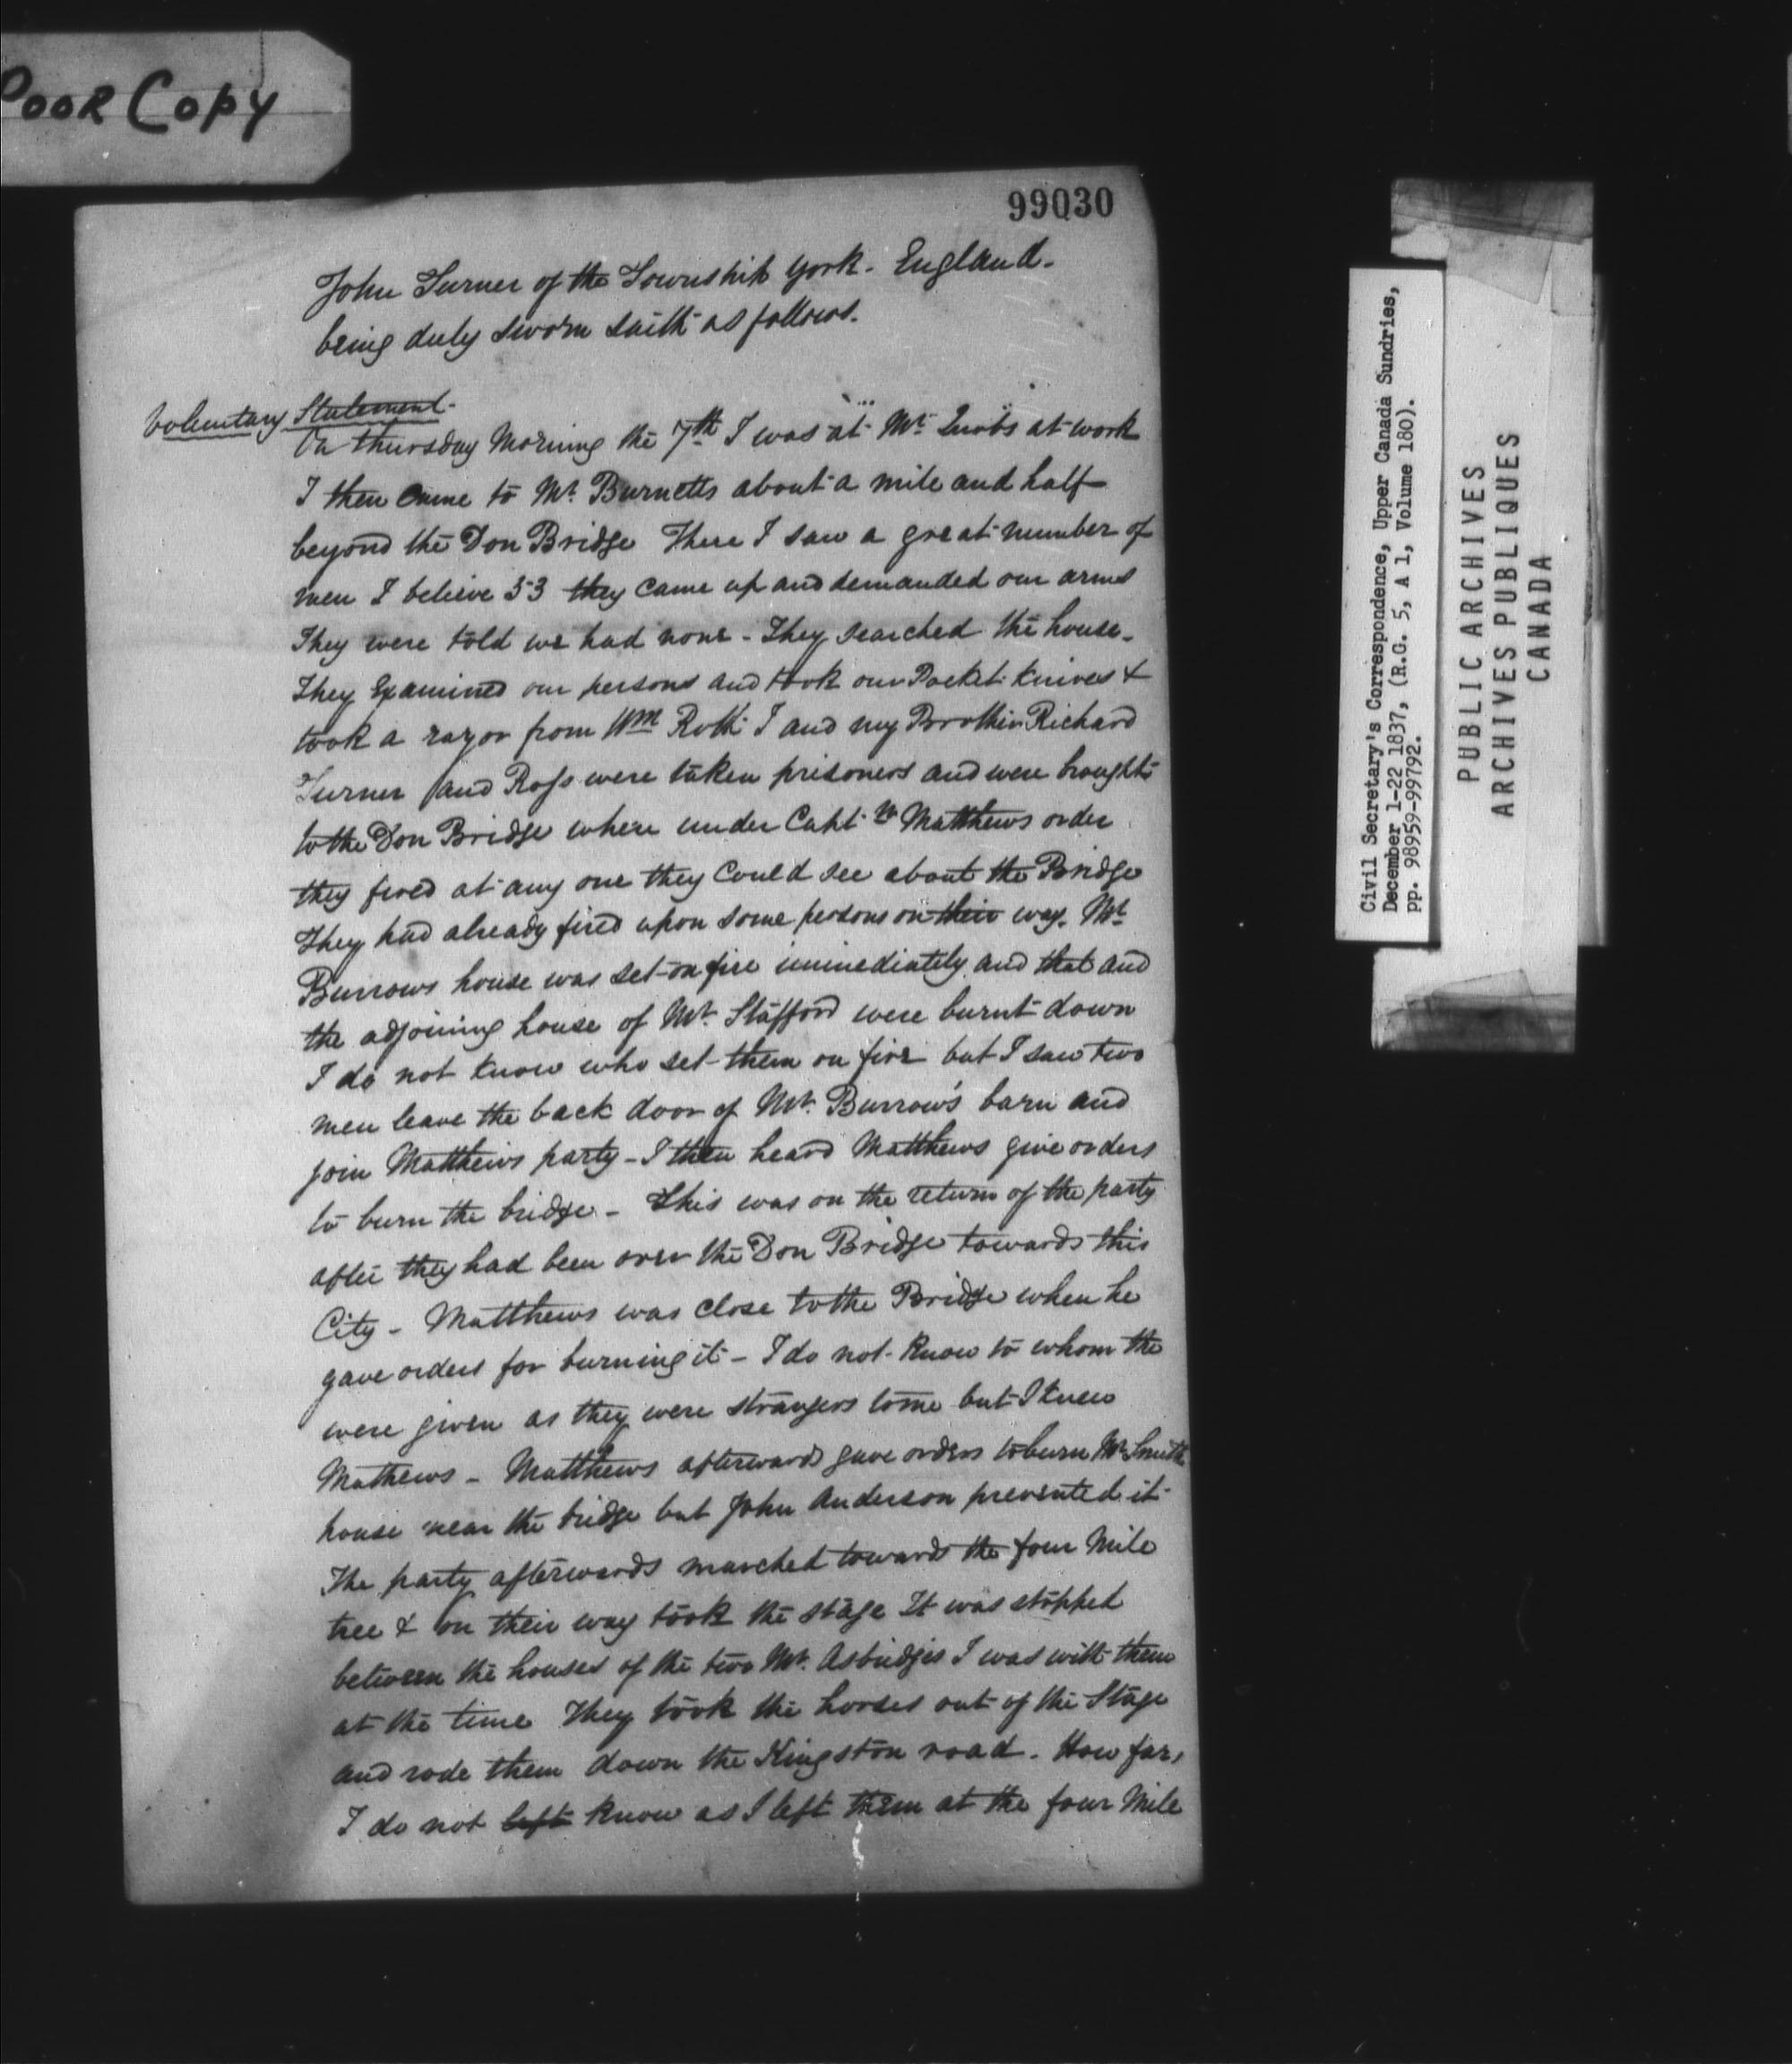 Poor Copy
99030
John Turner of the Township York. England.
being duly sworn saith as follows.
Voluntary Statement.
On thursday Morning the 7th I was at Mr. at work
I then came to Mr. Burnetts about a mile and half
beyond the Don Bridge There I saw a great number of
men I believe 53 they came up and demanded our arms
They were told we had none - They searched the house.
They Examined our persons and took our Pocket knives &
took a razor from Wm Roth I and my Brother Richard
Turner and Ross were taken prisoners and were brought
to the Don Bridge where under Capt. Matthews order
they fired at any one they could see about the Bridge
They had already fired upon some persons on their way. Mr
Burrows house was set on fire immediately and that and
the adjoining house of Mr. Stafford were burnt down
I do not know who set them on fire but I saw two
men leave the back door of Mr. Burrow's barn and
join Matthews party - I then heard Matthews give orders
to burn the bridge. - This was on the return of the party
after they had been over the Don Bridge towards this
City - Matthews was close to the Bridge when he
gave orders for burning it - I do not know to whom the
were given as they were strangers to me but I knew
Mathews - Matthews afterwards gave orders to burn Mr Smith
house near the bridge but John Anderson prevented it
The party afterwards marched towards the four Mile
tree & on their way took the stage It was stopped
between the houses of the two Mr. Asbridges I was with them
at the time They took the horses out of the Stage
and rode them down the Kingston road. How far,
I do not left know as I left them at the four Mile
Civil Secretary's Correspondence, Upper Canada Sundries,
December 1-22 1837, (R.G. 5, A 1, Volume 180).
pp. 98959-99792.
PUBLIC ARCHIVES
ARCHIVES PUBLIQUES
CANADA